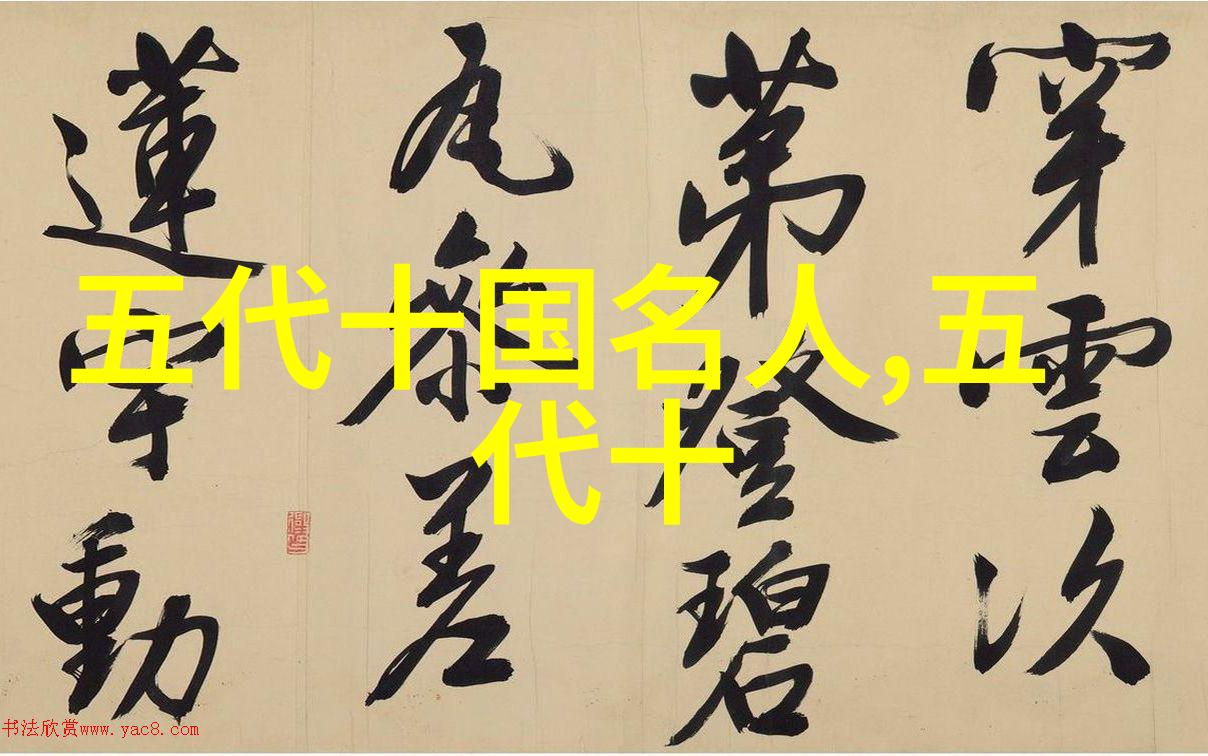 穿雲次
第登碧
瓦參差
蓮宇動
五代十国名人,五
代十
书法欣赏www.yac8.com